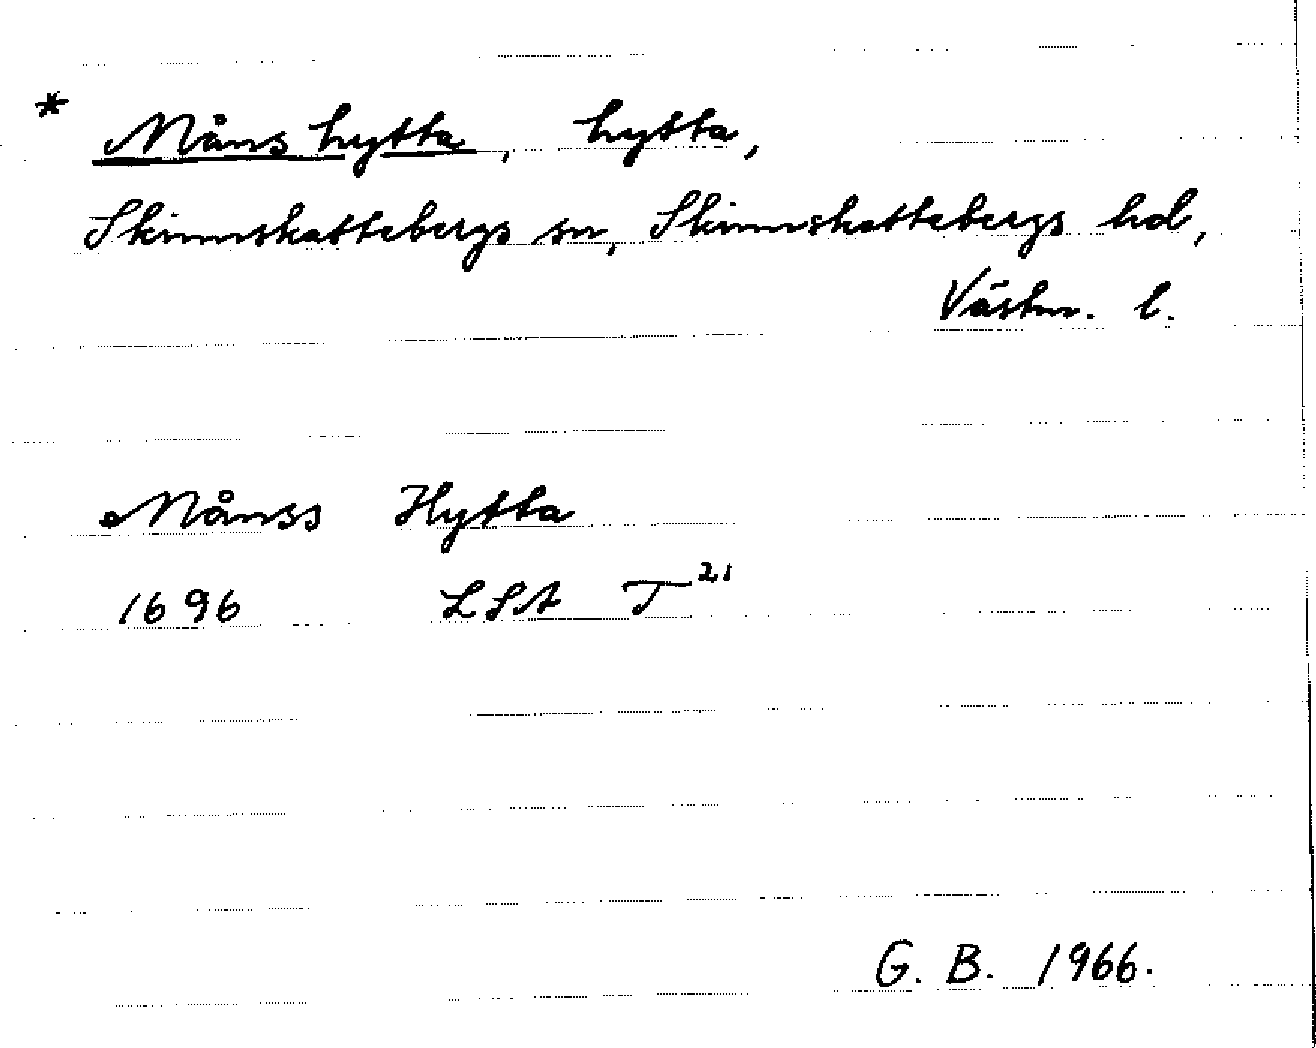 * Måns hytta, hytta,
Skinnskattebergs sn, Skinnskattebergs hd,
Västm. l.
Månss Hytta
1696 LSA T²¹
G. B. 1966.